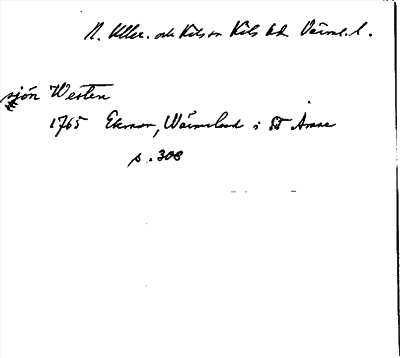 N. Uller. och Kils sn Kils hd Värml. l.
sjön Westen
1765 Ekman, Wärmeland i
p. 308